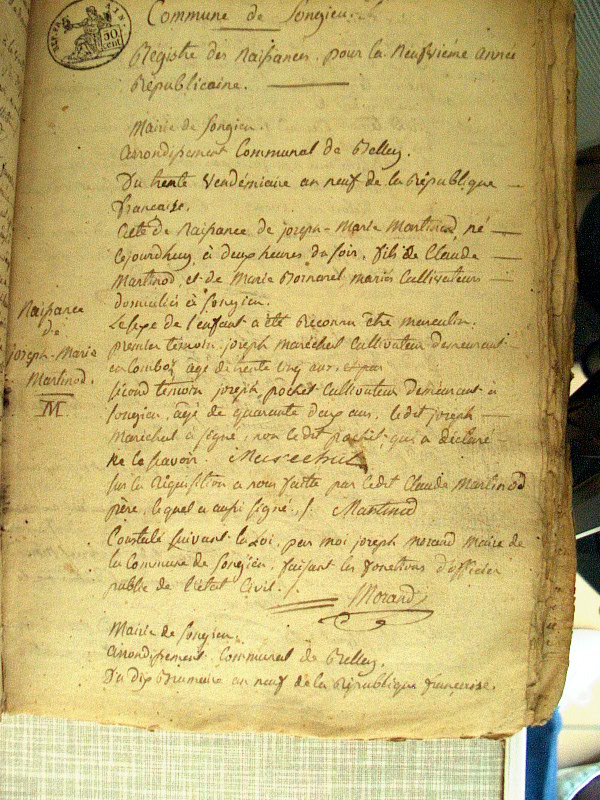 Commune de Songieu.
50
cent
Registre des Naissances pour la Neufvieme année
Républicaine.
Mairie de Songieu.
Arrondissement Communal de Belley.
Du trente Vendémiaire an neuf de la République
française.
Acte de Naissance de joseph-Marie Martinod, né
cejourdhuy à deux heures du soir, fils de Claude
Martinod, et de Marie Bornarel mariés Cultivateurs
domiciliés à Songieu.
Naissance
de
joseph-Marie
Martinod.
M.
Le sexe de l'enfant a été reconnu être masculin.
premier temoin, joseph maréchal Cultivateur demeurant
agé de trente cinq ans,
second temoin joseph pochet Cultivateur demeurant à
Songieu, agé de quarante deux ans, ledit joseph
Maréchal a signé, non ledit pochet qui a déclaré
ne le savoir. Marechal
sur la réquisition a nous faitte par ledit Claude Martinod
père, lequel a aussi signé ./. Martinod
Constaté suivant la Loi, par moi joseph morand Maire de
la Commune de Songieu, faisant les fonctions d'officier
public de l'état Civil ./.
Morand
Mairie de Songieu.
Arrondissement Communal de Belley.
Du dix Brumaire an neuf de la République française.